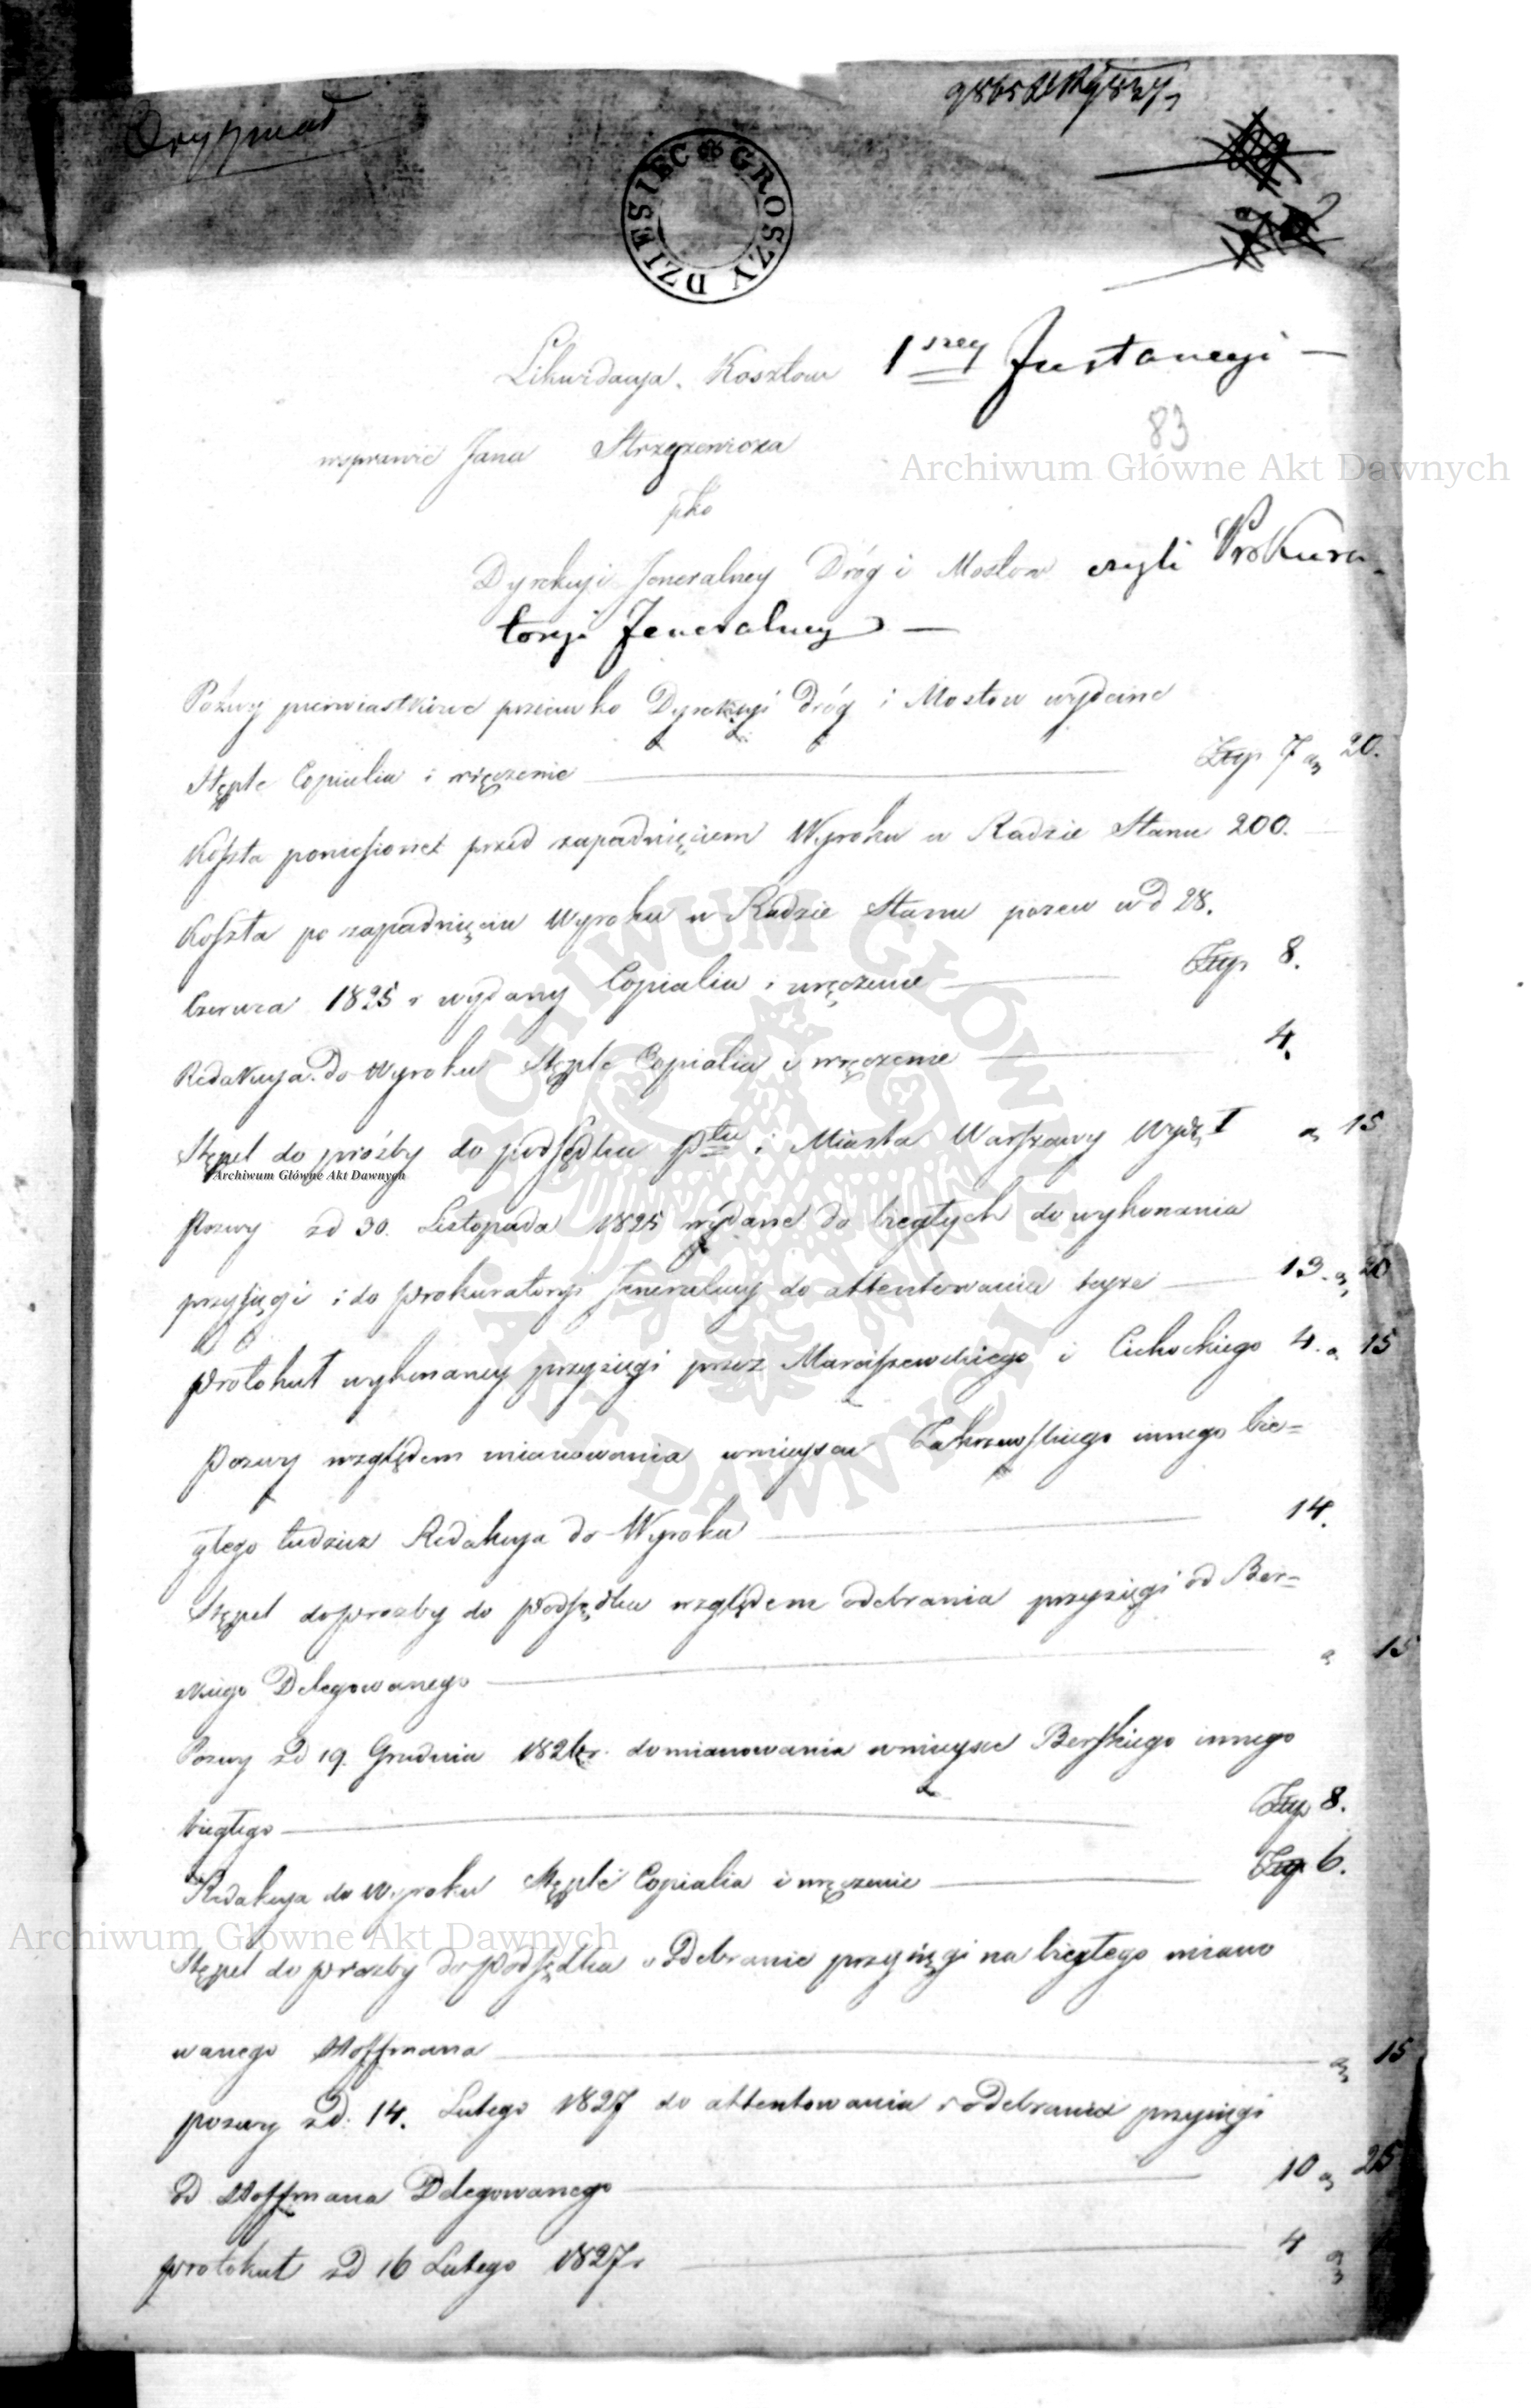 Oryginał
DZIESIEC GROSZY
Likwidacya Kosztow 1szey Jnstancyi —
83
wsprawie Jana Strzyżewicza
Archiwum Główne Akt Dawnych
pko
Dyrekcyi Jeneralney Dróg i Mostow czyli Prokura-
toryi Jeneralney —
Pozwy pierwiastkowe przeciwko Dyrekcyi Dróg i Mostow wydane
Stęple Copialia i wręczenie — Złp 7 g 20.
Koszta poniesione przed zapadnięciem Wyroku w Radzie Stanu 200.
Koszta po zapadnięciu Wyroku w Radzie Stanu pozew w d 28.
Czerwca 1825 r wydany Copialia i wręczenie — Złp 8.
Redakcya do Wyroku Stęple Copialia i wręczenie — 4.
Stępel do prośby do podsędka Ptu i Miasta Warszawy Wydz I g 15
Archiwum Główne Akt Dawnych
Pozwy zd 30. Listopada 1825 wydane do biegłych do wykonania
przysięgi i do Prokuratoryi Jeneralney do attentowania teyże — 13. g 20
Protokuł wykonaney przysięgi przez Marciszewskiego i Cichockiego 4. g 15
Pozwy względem mianowania wmieysce Zakrzewskiego innego bie=
głego tudzież Redakcya do Wyroku — 14.
Stępel do prozby do Podsędka względem odebrania przysięgi od Ber=
skiego Delegowanego — g 15
Pozwy zd 19. Grudnia 1826 r. do mianowania wmieysce Berskiego innego
biegłego — Złp 8.
Redakcya do Wyroku Stęple Copialia i wręczenie — Złp 6.
Archiwum Główne Akt Dawnych
Stępel do prozby do Podsędka o odebranie przysięgi na biegłego miano
wanego Hoffmana — g 15
pozwy zd: 14. Lutego 1827 do attentowania odebrania przysięgi
od Hoffmana Delegowanego — 10 g 25
protokuł zd 16 Lutego 1827 r — 4 g
ARCHIWUM GŁÓWNE AKT DAWNYCH